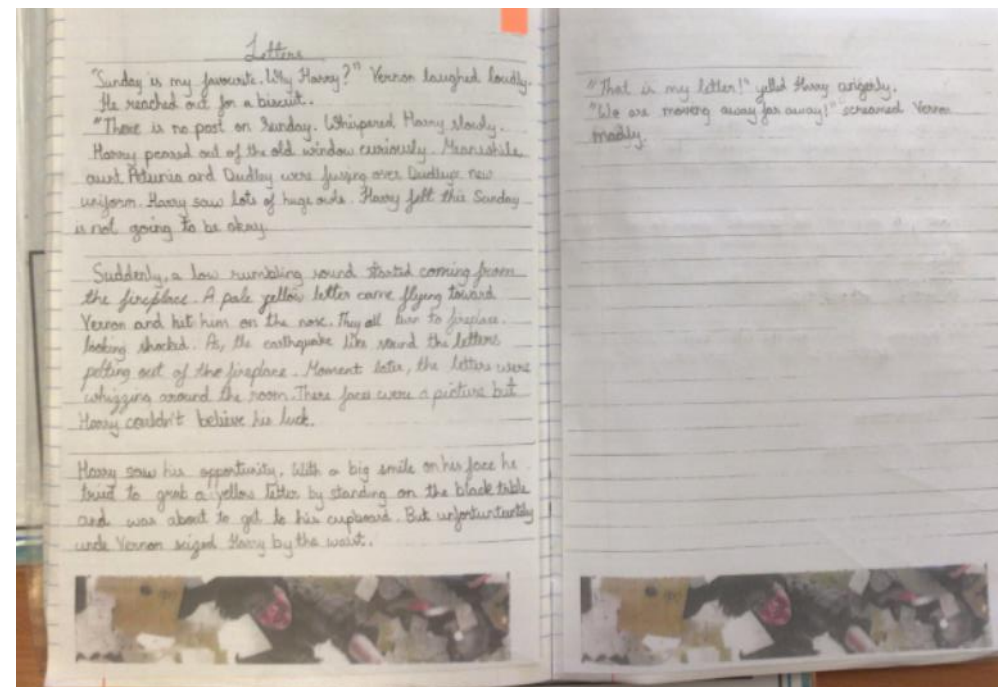 Letters
"Sunday is my favourite. Why Harry?" Vernon laughed loudly.
He reached out for a biscuit.
"There is no post on Sunday. Whispered Harry slowly.
Harry peared out of the old window curiously. Meanwhile
aunt Petunia and Dudley were fussing over Dudleys new
uniform. Harry saw lots of huge owls. Harry felt this Sunday
is not going to be okay.
Suddenly, a low rumbling sound started coming from
the fireplace. A pale yellow letter came flying toward
Vernon and hit him on the nose. They all turn to fireplace.
looking shocked. As, the earthquake like sound the letters
pelting out of the fireplace. Moment later, the letters were
whizzing around the room. There faces were a picture but
Harry couldn't believe his luck.
Harry saw his opportunity. With a big smile on his face he
tried to grab a yellow letter by standing on the black table
and was about to get to his cupboard. But unfortuntantly
uncle Vernon seized Harry by the waist.
"That is my letter!" yelled Harry angerly.
"We are moving away far away!" screamed Vernon
madly.